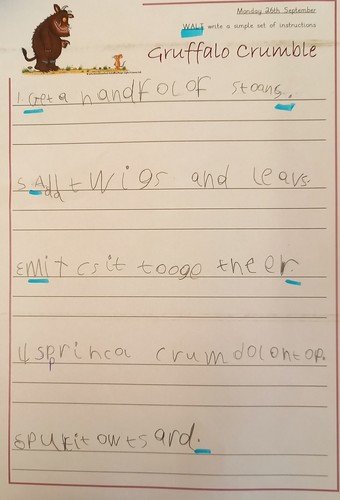 Monday 26th September
WALT write a simple set of instructions
Gruffalo Crumble
1. Get a handfolof stoans.
2. Add twigs and leavs.
3 mitcsit toogo theer.
4 sprinca crumdolontop.
5 pukit owtsard.